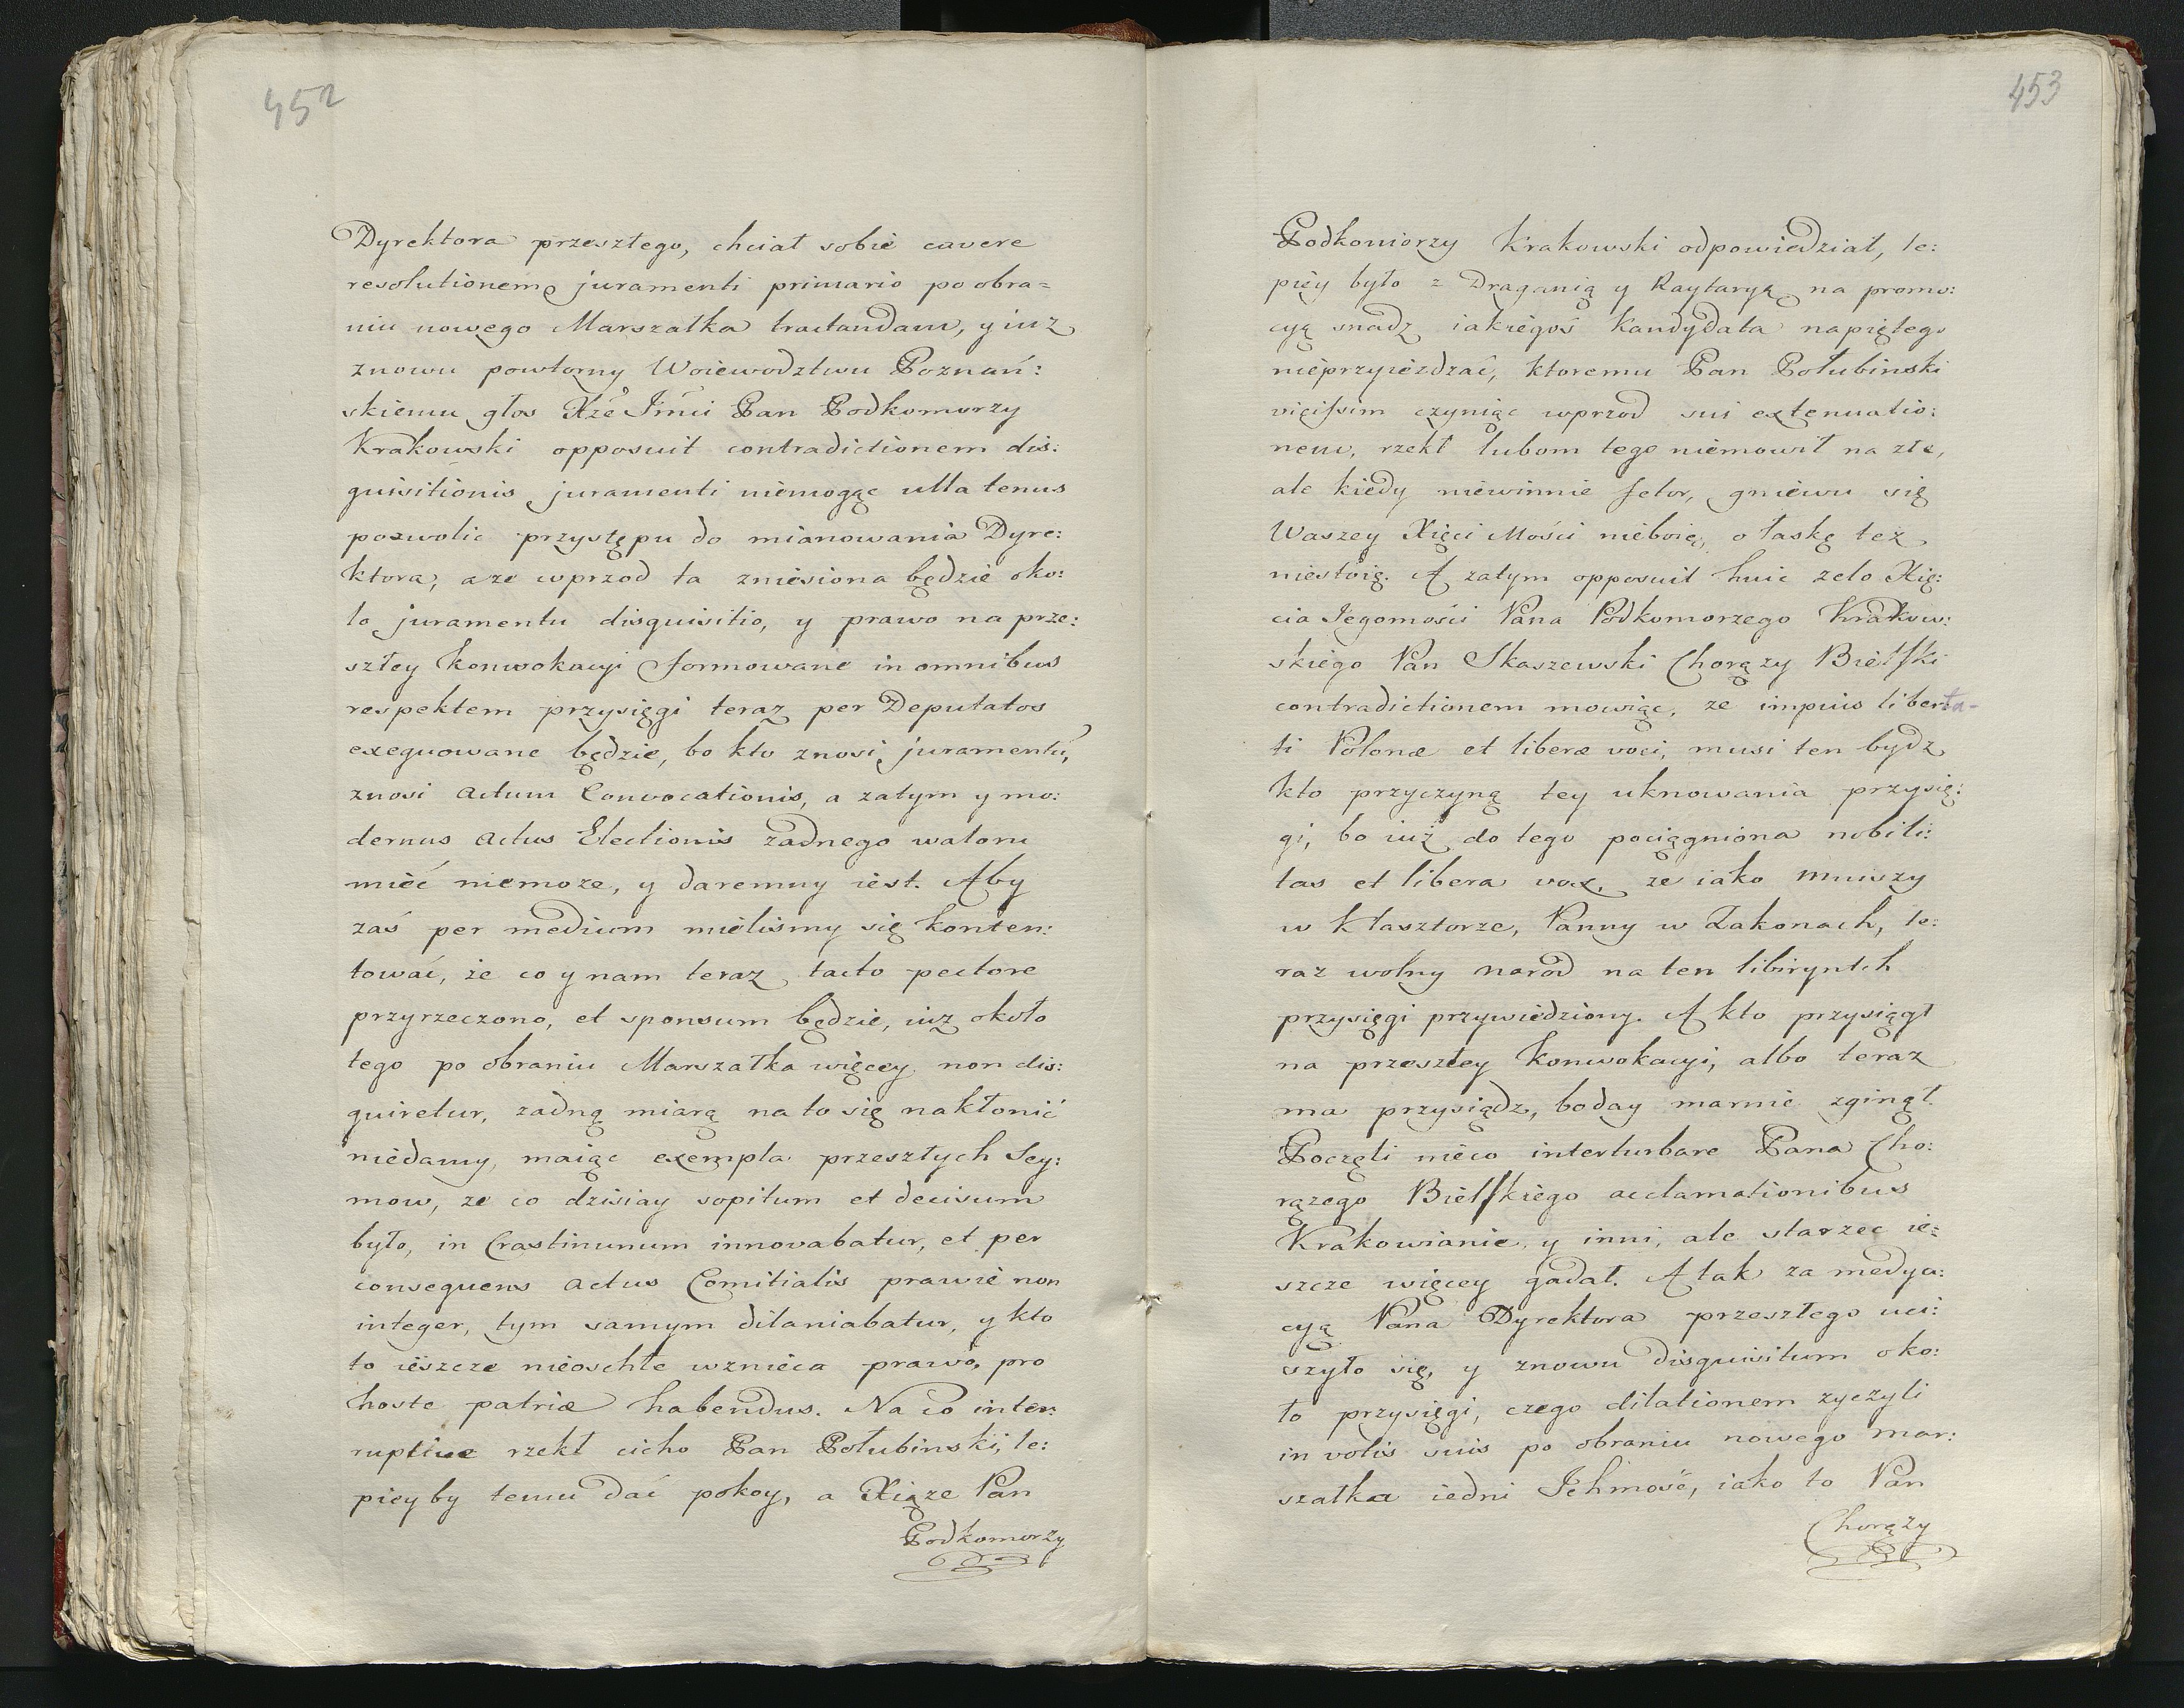 452
Dyrektora przeszłego, chciał sobie cavere
resolutionem juramenti primario po obra=
niu nowego Marszałka tractandam, y iuz
znowu powtorny Woiewodztwu Poznań:
skiemu głos Xże Jmći Pan Podkomorzy
Krakowski opposuit contradictionem dis:
quisitionis juramenti niemogąc ulla tenus
pozwolic przystępu do mianowania Dyre:
ktora, aze wprzod ta zniesiona będzie oko:
lo juramentu disquisitio, y prawo na prze:
szłey konwokacyi formowane in omnibus
respektem przysięgi teraz per Deputatos
exequowane będzie, bo kto znosi juramentū,
znosi actum Convocationis, a zatym y mo:
dernus actus Electionis zadnego waloru
mieć niemoze, y daremny iest. Aby
zaś per medium mielismy się konten:
tować, że co y nam teraz tacto pectore
przyrzeczono, et sponsum będzie, iuz około
tego po obraniu Marszałka więcey non dis:
quiretur, zadną miarą na to się nakłonić
niedamy, maiąc exempla przeszłych Sey:
mow, ze co dzisiay sopitum et decisum
było, in Crastinunum innovabatur, et per
consequens actus Comitialis prawie non
integer, tym samym dilaniabatur, y kto
to ieszcze nieoschłe wznieca prawo, pro
hoste patriæ habendus. Na co inter:
ruptive rzekł cicho Pan Połubinski, le:
pieyby temu dać pokoy, a Xiąze Pan
Podkomorzy
453
Podkomorzy Krakowski odpowiedział, le:
piey było z Draganią y Raytaryą na promo:
cyą snadz iakiegoś Kandydata napiętego
nieprzyiezdzać, ktoremu Pan Połubinski
vicissim czyniąc wprzod sui extenuatio:
nem, rzekł lubom tego niemowił na złe,
ale kiedy niewinnie feror, gniewu się
Waszey Xięci Mości nieboię, o łaskę tez
niestoię. A zatym opposuit huic zelo Xię:
cia Jegomości Pana Podkomorzego Krakow:
skiego Pan Skaszewski Chorązy Bielski
contradictionem mowiąc, ze impius liberta-
ti Polonæ et liberæ voci, musi ten bydz
kto przyczyną tey uknowania przysię:
gi, bo iuż do tego pociągniona nobili:
tas et libera vox, ze iako Mniszy
w Klasztorze, Panny w Zakonach, te:
raz wolny narod na ten libirynth
przysięgi przywiedziony. A kto przysiągł
na przeszłey konwokacyi, albo teraz
ma przysiądz, boday marnie zginął.
Poczęli nieco interturbare Pana Cho:
rązego Bielskiego acclamationibus
Krakowianie y inni, ale starzec ie:
szcze więcey gadał. A tak za medya:
cyą Pana Dyrektora przeszłego uci:
szyło się, y znowu disquisitum oko:
ło przysięgi, czego dilationem zyczyli
in votis suis po obraniu nowego mar:
szałka iedni Ichmość, iako to Pan
Chorązy